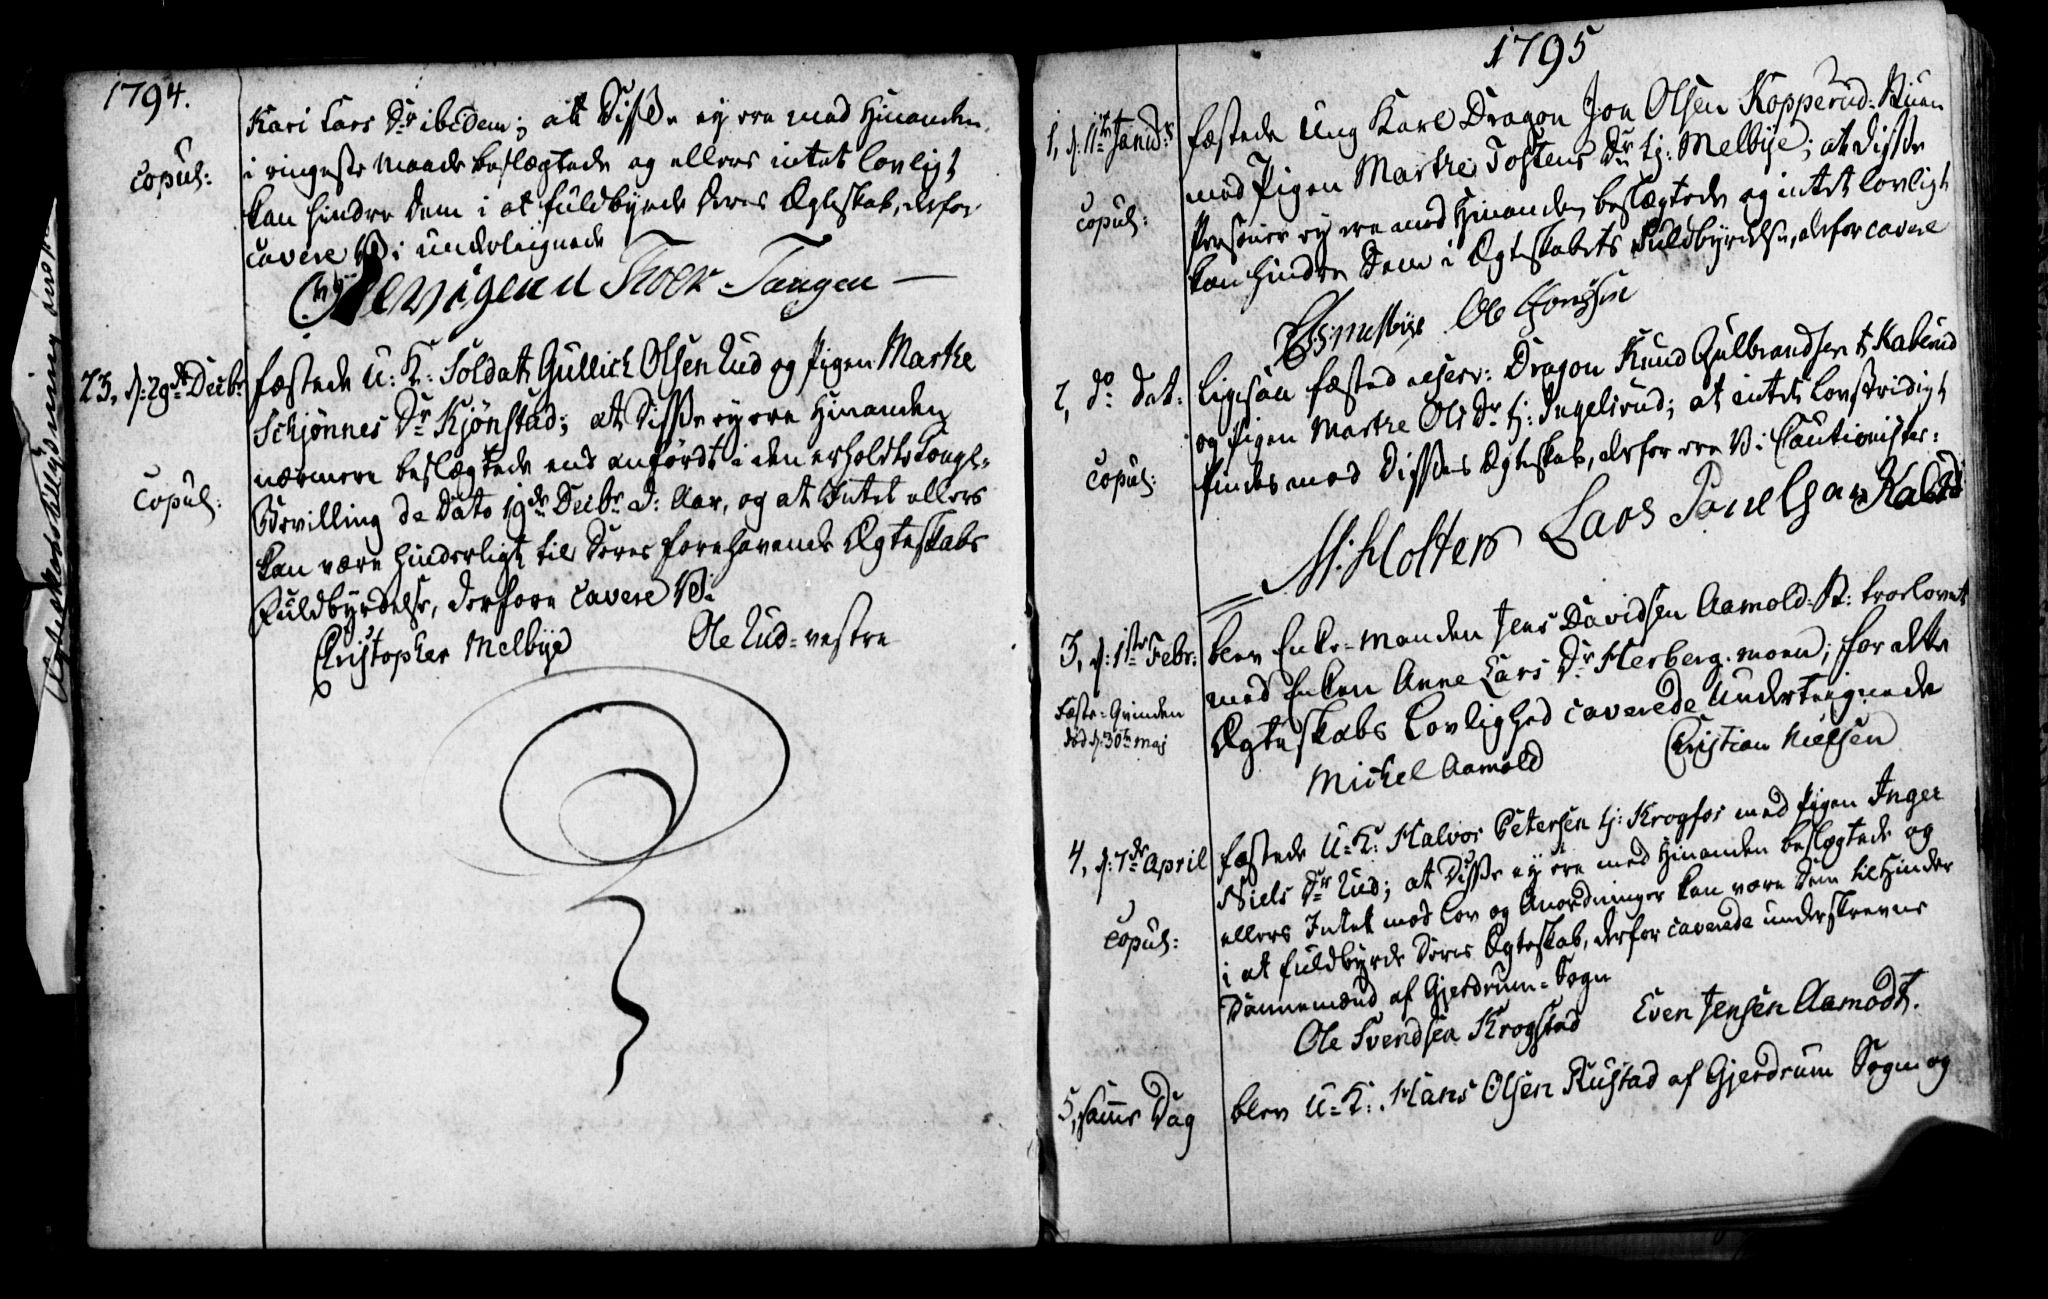 1794.
Kari Lars Dr ibidem; at Disse ey ere med Hinanden
Copul:
i ringeste Maade beslægtede og ellers intet lovligt
kan hindre Dem i at fuldbyrde Deres Ægteskab, derfor
cavere Vi underteignede
Tangen
23, d: 29de Decbr
fæstede U: K: Soldat Gullich Olsen Lud og Pigen Marthe
Schjønnes Dr Kjönstad; at Disse ey ere Hinanden
nærmere beslægtede end anfördt i den erholdte Kongl-
Copul:
Bevilling de Dato 19de Decbr d: Aar, og at Intet ellers
kan være hinderligt til Deres forehavende Ægteskabs
Fuldbyrdelse, derfore cavere Vi
Christopher Melbye Ole Lud-vestre
1795
1, d: 11te Januar
fæstede Ung Karl Dragon Jon Olsen Kopperud-
med Pigen Marthe Tostens Dr tj: Melbye; at disse
Copul:
Personer ey ere med Hinanden beslægtede og intet lovligt
kan hindre Dem i Ægteskabets Fuldbyrdelse, derfor cavere
Melbye Ole
2, do Dat:
ligesaa fæsted reserv: Dragon Knud Gulbrandsen tj Kaberud
og Pigen Marthe Ols Dr tj: Ingelsrud; at intet lovstridigt
Copul:
findes med Disses Ægteskab, derfor ere Vi Cautionister:
M: Holter Lars
3, d: 1ste Febr:
blev Enke-Manden Jens Davidsen Aamold: trolovet
med Enken Anne Lars Dr Herberg-moen; for dette
Fæste-Qvinden
død d: 30te Maj
Ægteskabs Lovlighed caverede Underteignede
Michel Aamold Christian Nielsen
4, d: 7de April
fæstede U-K: Halvor Petersen tj: Krogfos med Pigen Inger
Niels Dr Lud; at Disse ey ere med Hinanden beslægtede og
Copul:
ellers Intet mod Lov og Anordninger kan være Dem til Hinder
i at fuldbyrde Deres Ægteskab, derfor caverede underskrevne
Dannemænd af Gjerdrum-Sogn
Ole Svendsen Krogstad Even Jensen Aamodt.
5, samme Dag
blev U-K: Hans Olsen Rustad af Gjerdrum Sogn og